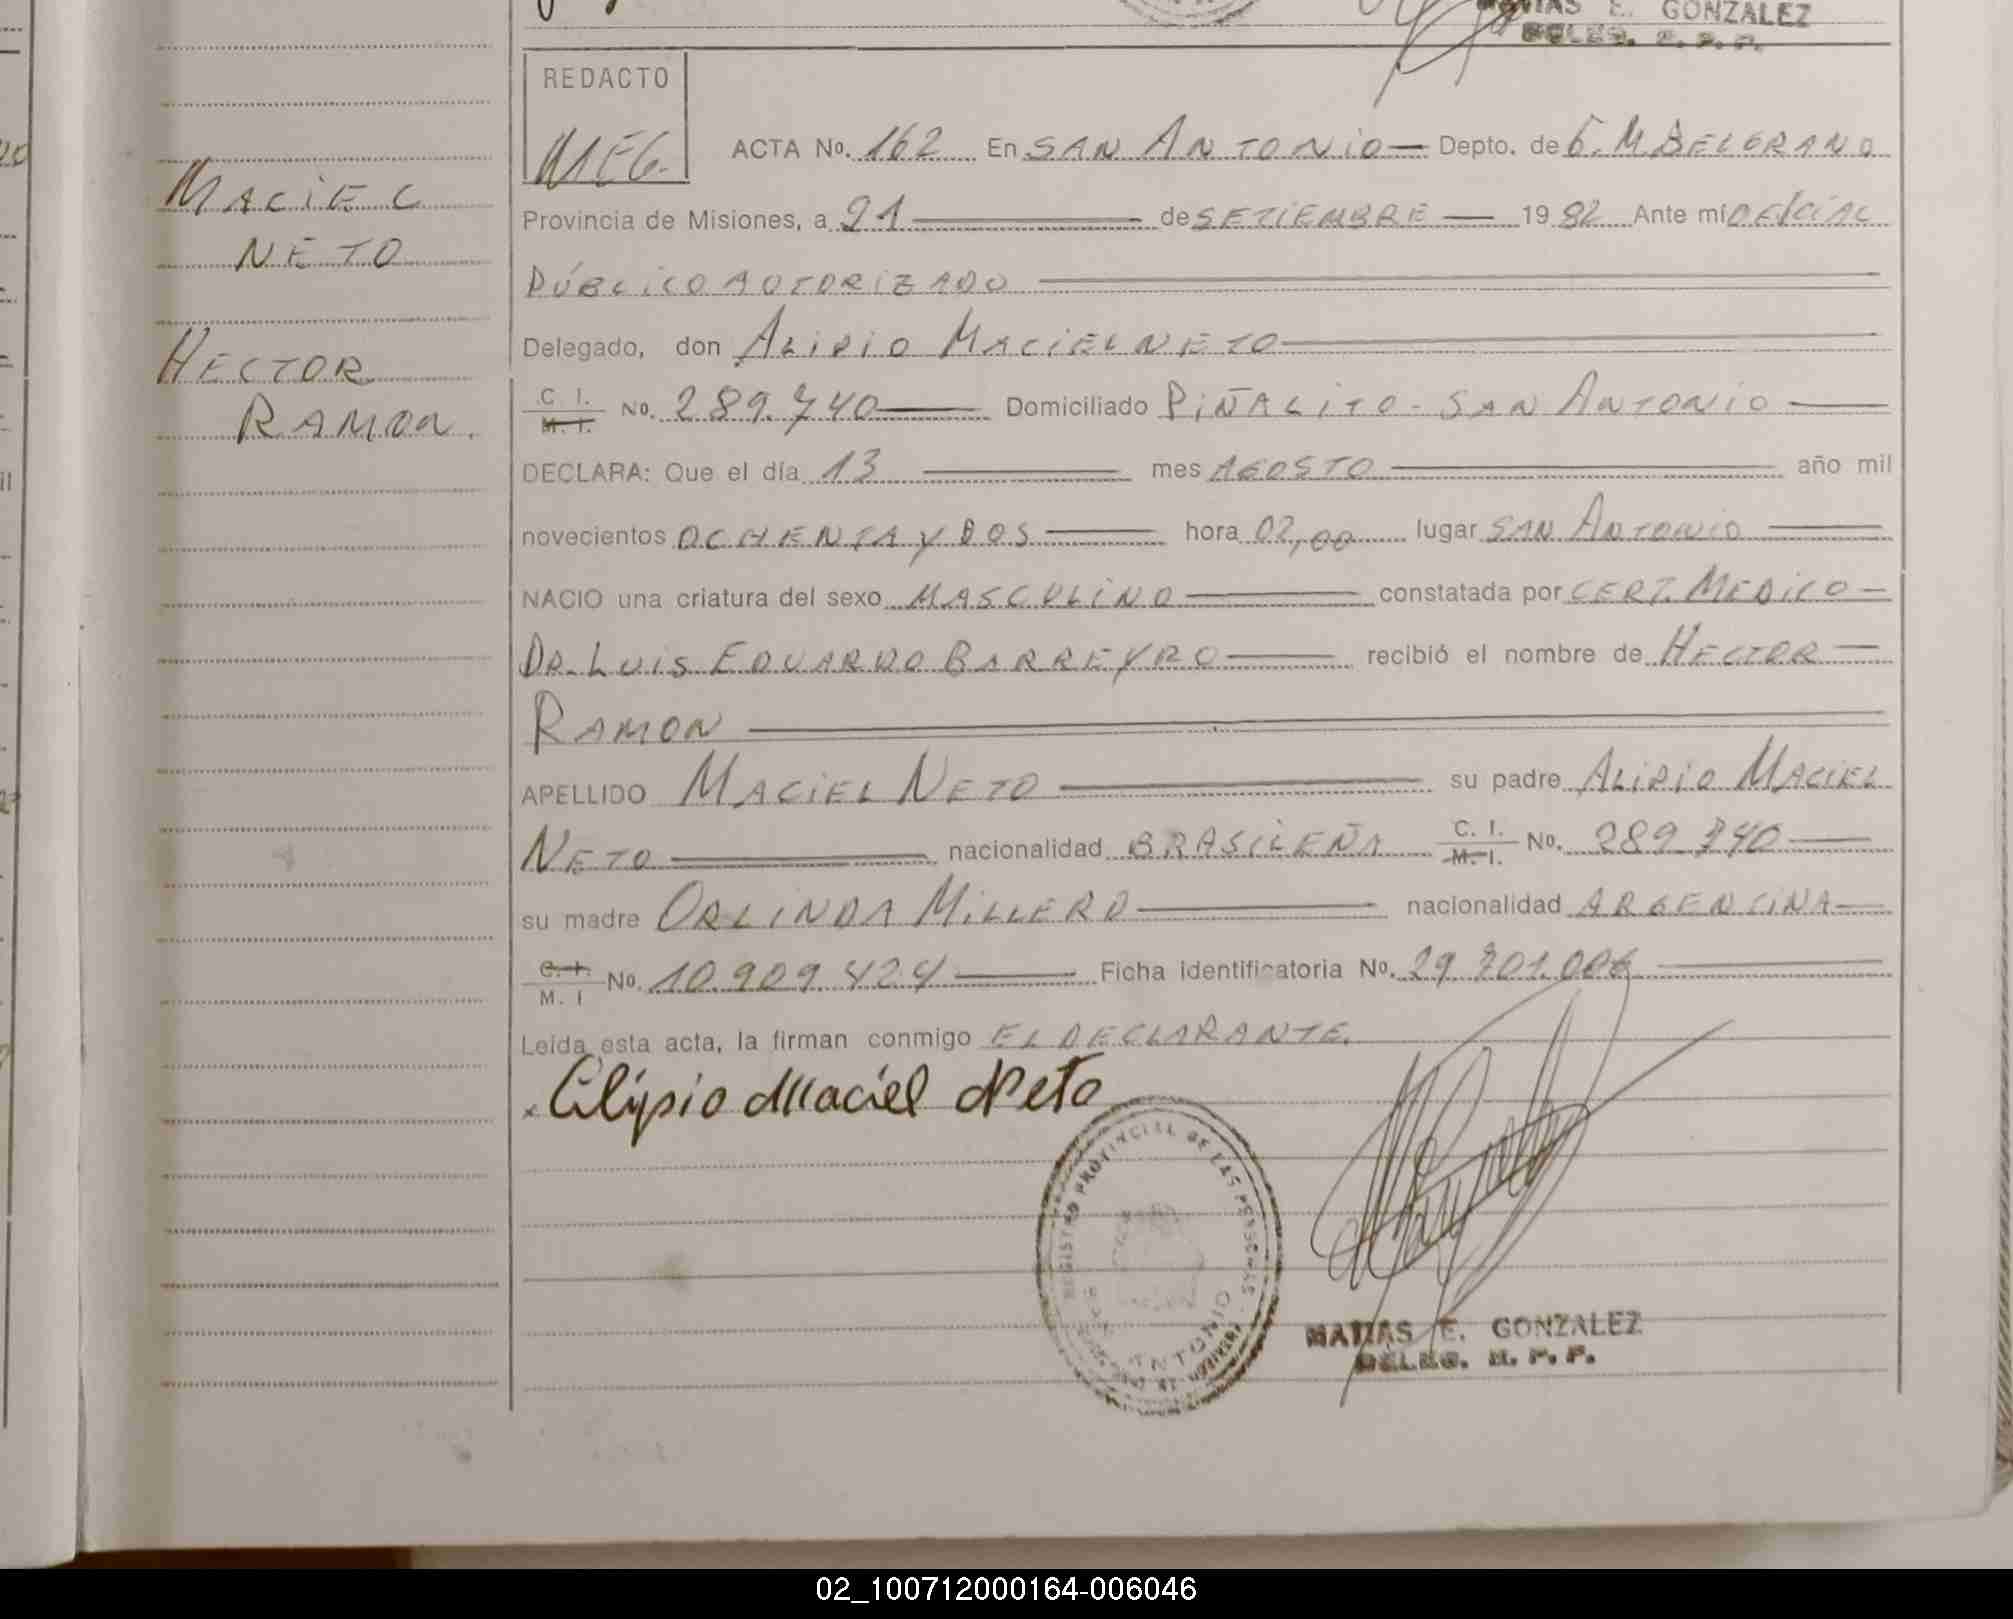 MATIAS E. GONZALEZ
DELEG. R. P. P.
REDACTO
MEG.
ACTA No. 162 En SAN ANTONIO — Depto. de G. M. BELGRANO
Provincia de Misiones, a 21 de SETIEMBRE — 19 82 Ante mí OFICIAL
PÚBLICO AUTORIZADO
Delegado, don ALIPIO MACIEL NETO
C. I.
M. I. No. 289.740 Domiciliado PIÑALITO - SAN ANTONIO
DECLARA: Que el día 13 mes AGOSTO año mil
novecientos OCHENTA Y DOS hora 02,00 lugar SAN ANTONIO
NACIO una criatura del sexo MASCULINO constatada por CERT. MEDICO
DR. LUIS EDUARDO BARREYRO recibió el nombre de HECTOR
RAMON
APELLIDO MACIEL NETO su padre ALIPIO MACIEL
NETO nacionalidad BRASILEÑA C. I. M. I. No. 289.740
su madre ORLINDA MILLERO nacionalidad ARGENTINA
C. I.
M. I No. 10.909.424 Ficha identificatoria No. 29.701.006
Leída esta acta, la firman conmigo EL DECLARANTE.
x Alípio Maciel Neto
REGISTRO PROVINCIAL DE LAS PERSONAS
ANTONIO
MATIAS E. GONZALEZ
DELEG. R. P. P.
MACIEL
NETO
HECTOR
RAMON.
02_100712000164-006046